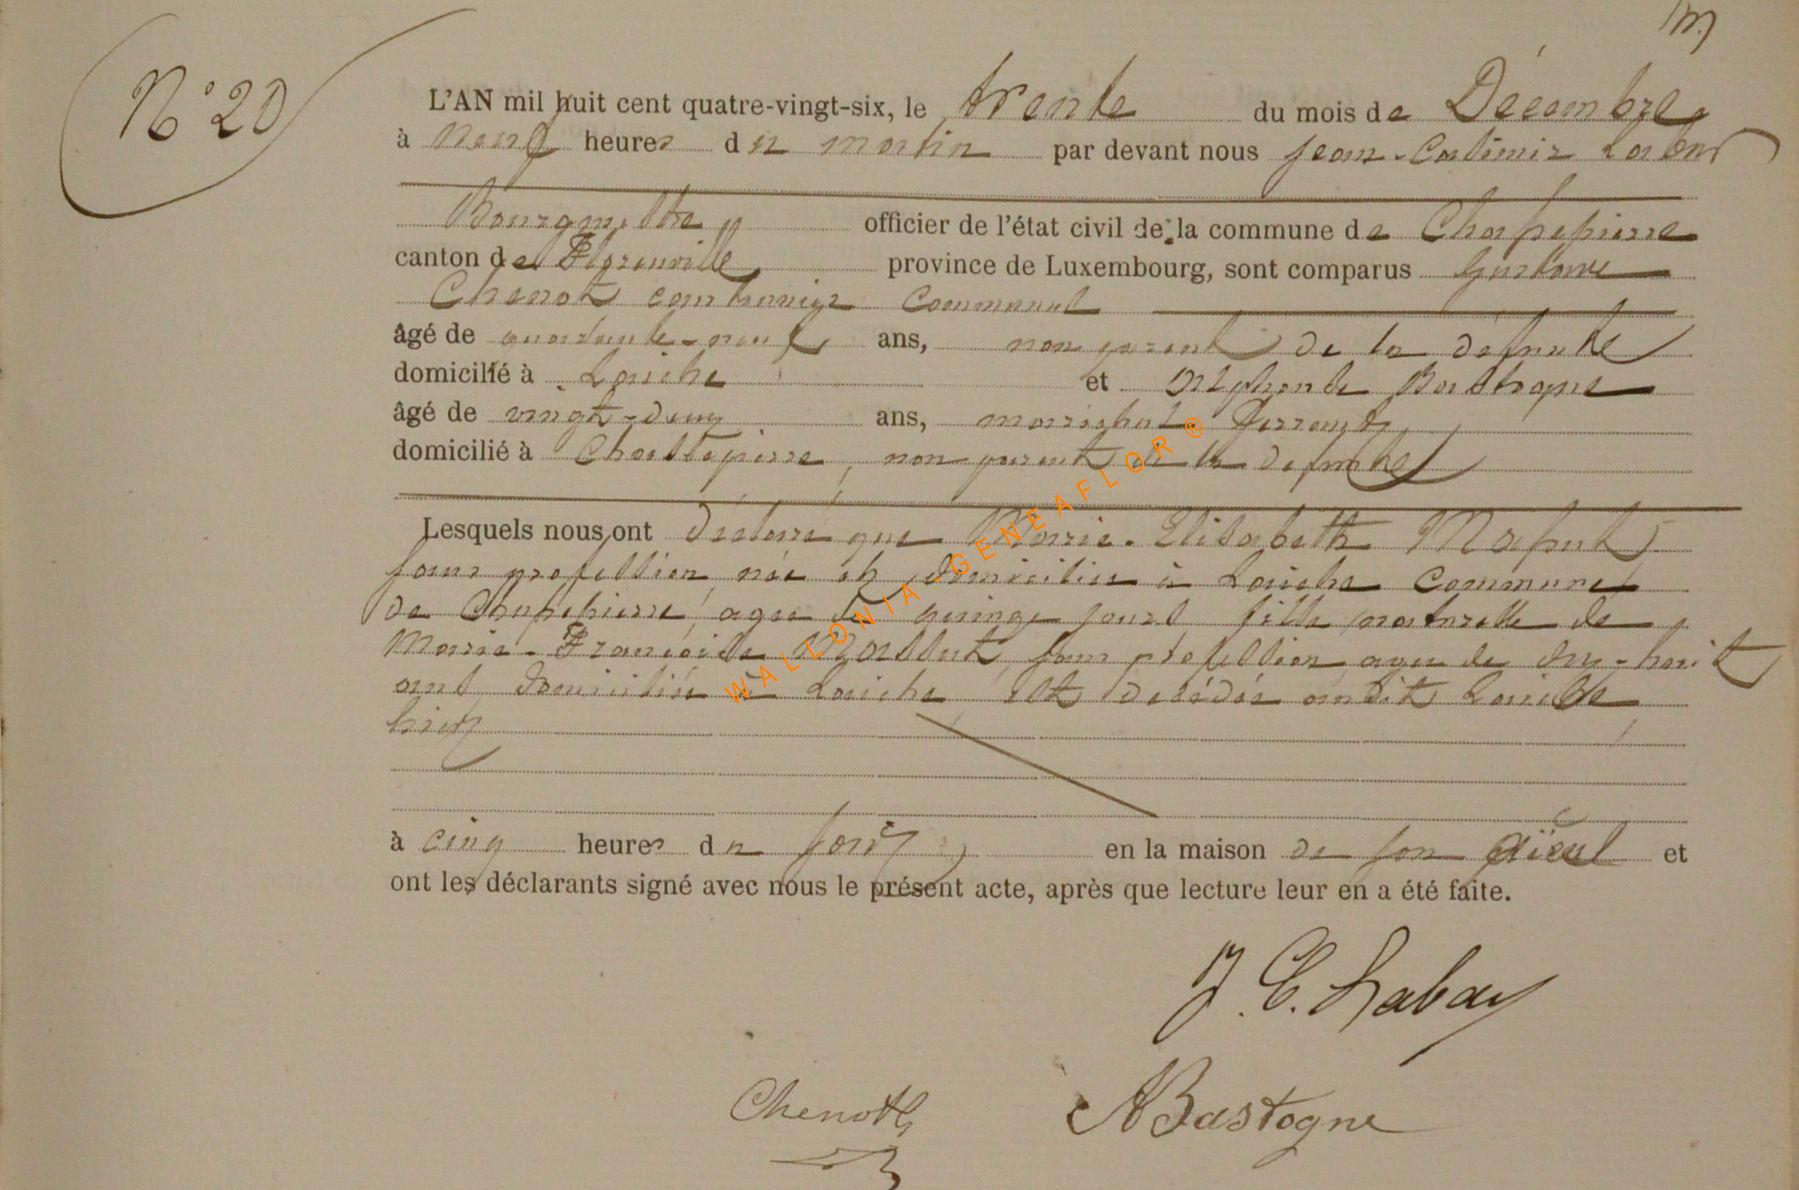 m
N° 20
L'AN mil huit cent quatre-vingt-six, le trente du mois de Décembre
à neuf heures du matin par devant nous Jean-Casimir Labar
Bourgmestre officier de l'état civil de la commune de Chassepierre
canton de Florenville province de Luxembourg, sont comparus Gustave
Chenot cantonnier communal
âgé de quarante-neuf ans, non parent de la défunte
domicilié à Laiche et Alphonse Bastogne
âgé de vingt-deux ans, maréchal ferrant
domicilié à Chassepierre, non parent de la défunte
Lesquels nous ont déclaré que Marie-Elisabeth Massut
sans profession née et domiciliée à Laiche commune
de Chassepierre, agée de quinze jours fille naturelle de
Marie-Françoise Massut sans profession agée de dix-huit
ans domiciliée à Laiche, est décédée audit Laiche
hier
à cinq heures du soir en la maison de son aïeul et
ont les déclarants signé avec nous le présent acte, après que lecture leur en a été faite.
J. C. Labar
Chenot ABastogne
WALLONIA-GENEAFLOR®